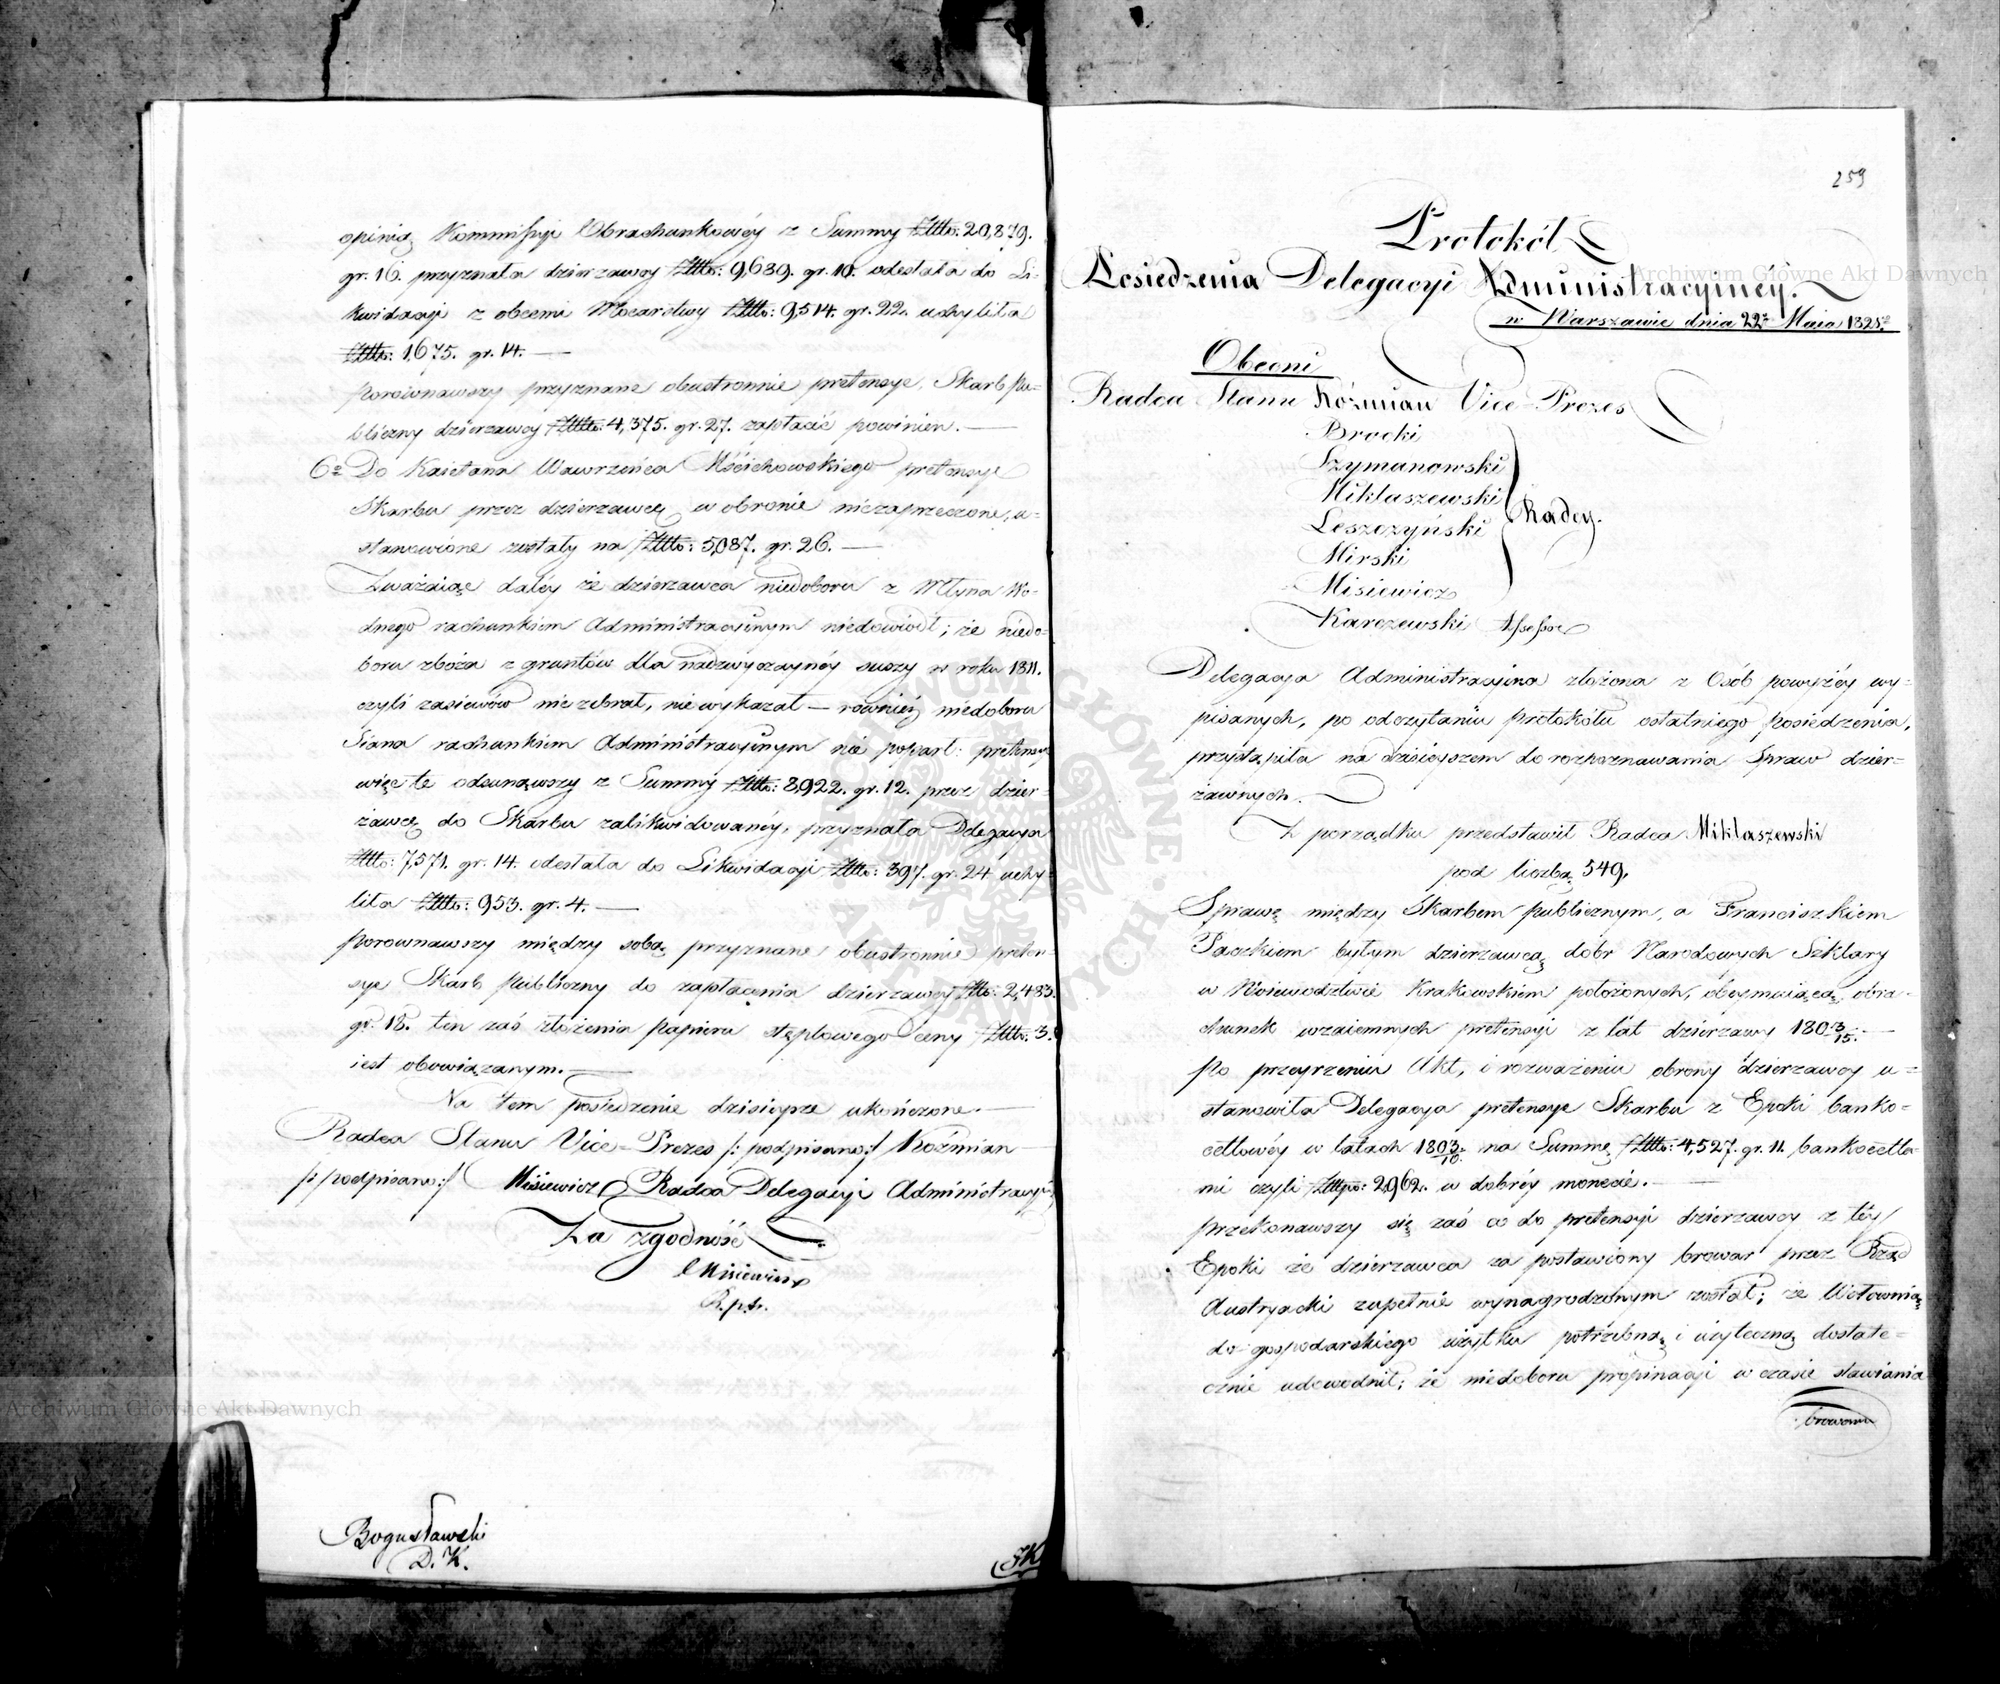 opinią Kommissyi Obrachunkowéy z Summy Złtto: 20,879.
gr. 16. przyznała dzierzawcy Złtto: 9,689. gr. 10. odesłała do Li-
kwidacyi z obcemi Mocarstwy Złtto: 9,514. gr. 22. uchyliła
Złtto: 1,675. gr. 14. —
Porównawszy przyznane obustronnie pretensye, Skarb Pu-
bliczny dzierzawcy Złtto: 4,375. gr. 27. zapłacić powinien. —
6o Do Kaietana Wawrzeńca Mścichowskiego pretensye
Skarbu przez dzierzawcę w obronie niezaprzeczone, u-
stanowione zostały na Złtto: 5,087. gr. 26. —
Zważaiąc daléy że dzierzawca niedoboru z Młyna Wo-
dnego rachunkiem Administracyinym niedowiódł; że niedo-
boru zboża z gruntów dla nadzwyczaynéy suszy w roku 1811.
czyli zasiewów nie zebrał, nie wykazał — również niedoboru
Siana rachunkiem Administracyinym nie poparł: pretensye
więc te odsunąwszy z Summy Złtto: 8,922. gr. 12. przez dzier-
żawcę do Skarbu zalikwidowanéy, przyznała Delegacya
Złtto: 7,571. gr. 14. odesłała do Likwidacyi Złtto: 397. gr. 24 uchy-
liła Złtto: 953. gr. 4. —
Porownawszy między sobą przyznane obustronnie preten-
sye Skarb Publiczny do zapłacenia dzierzawcy Złtto: 2,483.
gr. 18. ten zaś złożenia papieru stęplowego ceny Złtto: 3.
iest obowiązanym. —
Na tem posiedzenie dzisieysze ukończone. —
Radca Stanu Vice-Prezes /: podpisano:/ Koźmian
/: podpisano:/ Misiewicz Radca Delegacyi Administracyi
Za zgodność
Misiewicz
Bogusławski
D. K.
259
Protokół
Posiedzenia Delegacyi Administracyinéy.
w Warszawie dnia 22go Maia 1821.
Obecni
Radca Stanu Kózmian Vice-Prezes
Brocki
Szymanowski
Miklaszewski
Leszczyński
Radcy.
Mirski
Misiewicz
Karczewski Assessor
Delegacya Administracyina złożona z Osób powyżéy wy-
pisanych, po odczytaniu protokółu ostatniego posiedzenia,
przystąpiła na dzisieyszem do rozpoznawania Spraw dzier-
żawnych.
Z porządku przedstawił Radca Miklaszewski
pod liczbą 549.
Sprawę między Skarbem publicznym, a Franciszkiem
Paczkiem byłym dzierzawcą dobr Narodowych Szklary
w Woiewództwie Krakowskiem położonych, obeymuiącą obra-
chunek wzaiemnych pretensyi z lat dzierzawy 1803/15. —
Po przeyrzeniu Akt, i rozważeniu obrony dzierzawcy u-
stanowiła Delegacya pretensye Skarbu z Epoki banko-
cetlowéy w latach 1803/10. na Summę Złtto: 4,527. gr. 11. bankocetla-
mi czyli Złttpo: 2,962. w dobréy monecie. —
Przekonawszy się zaś co do pretensyi dzierzawcy z téy
Epoki że dzierzawca za postawiony browar przez Rząd
Austryacki zupełnie wynagrodzonym został; że Wołownią
do gospodarskiego użytku potrzebną i użyteczną dostate-
cznie udowodnił; że niedoboru propinacyi w czasie stawiania
browaru